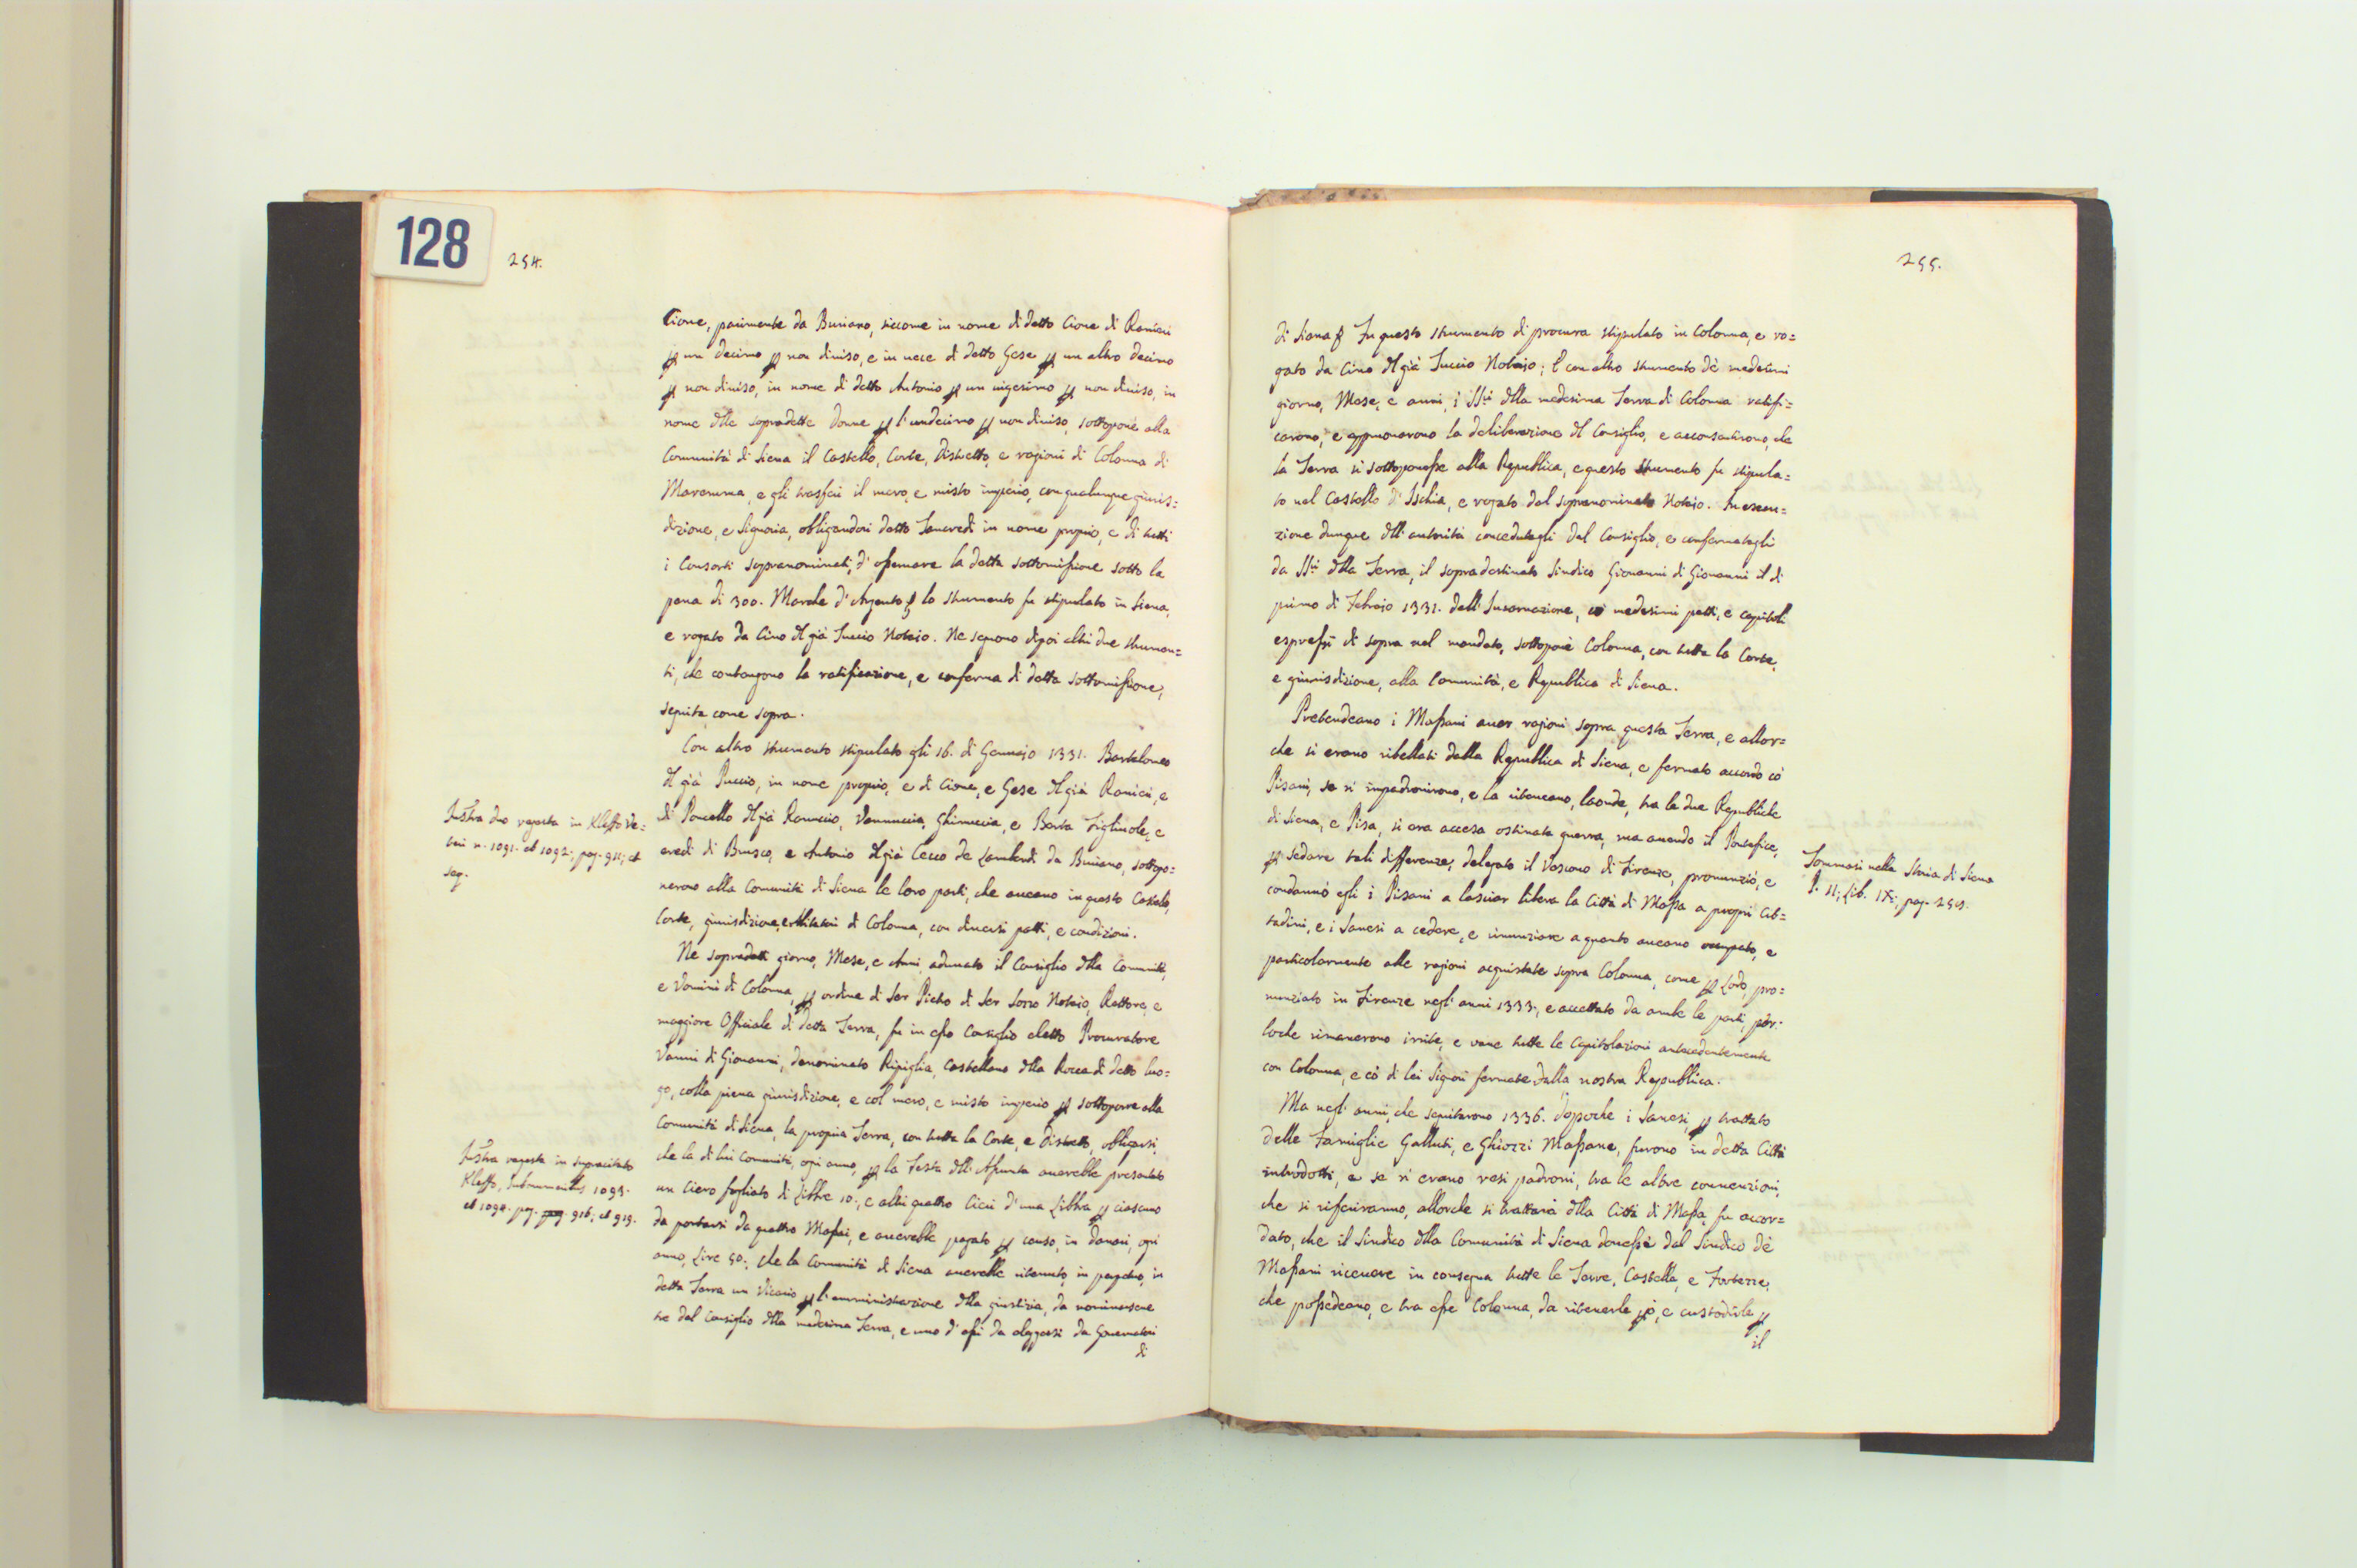 128
254.
Cione, parimente da Buriano, siccome in nome di detto Cione di Ranieri
ꝑ un decimo ꝑ non diuiso, e in uece di detto Gese ꝑ un altro decimo
ꝑ non diuiso, in nome di detto Antonio ꝑ un uigesimo ꝑ non diuiso, in
nome dlle sopradette donne ꝑ l'undecimo ꝑ non diuiso, sottopone alla
Comunità di Siena il Castello, Corte, Distretto, e ragioni di Colonna di
Maremma, e gli trasferì il mero, e misto imperio, con qualunque giuris=
dizione, e Signoria, obligandosi detto Tancredi in nome proprio, e di tutti
i Consorti sopranominati, d'osseruare la detta sottomissione sotto la
pena di 300. Marche d'Argento lo strumento fu stipulato in Siena,
e rogato da Cino dl già Tuccio Notaio. Ne seguono dipoi altri due strumen=
ti, che contengono la ratificazione, e conferma di detta sottomissione,
seguita come sopra.
Con altro strumento stipulato gli 16. di Gennaio 1331. Bartolomeo
dl già Puccio, in nome proprio, e di Cione, e Gese dl già Ranieri, e
di Poncello dl già Ranuccio, Vannuccia, Ghinuccia, e Berta Figliuole, e
eredi di Brusco, e Antonio dl già Cecco de Lambardi da Buriano, sottopo=
nerono alla Comunità di Siena le loro parti, che aueano in questo Castello,
Corte, giurisdizione, e Abitatori di Colonna, con diuersi patti, e condizioni.
Ne sopradetti giorno, Mese, e Anni, adunato il Consiglio dlla Comunità,
e Vomini di Colonna, ꝑ ordine di Ser Pietro di Ser Sozzo Notaio, Rettore, e
maggiore Officiale di detta Terra, fu in esso Consiglio eletto Procuratore
Vanni di Giouanni, denominato Ripiglia, Castellano dlla Rocca di detto luo=
go, colla piena giurisdizione, e col mero, e misto imperio ꝑ sottoporre alla
Comunità di Siena, la propria Terra, con tutta la Corte, e Distretto, obligarsi,
che la di lui Comunità, ogni anno, ꝑ la Festa dll'Assunta auerebbe presentato
un Ciero fogliato di Libbre 10., e altri quattro Cieri d'una Libbra ꝑ ciascuno
da portarsi da quattro Massai, e auerebbe pagato ꝑ censo, in danari, ogni
anno, Lire 50., che la Comunità di Siena auerebbe ritenuto, in perpetuo, in
detta Terra un Vicario ꝑ l'amministrazione dlla giustizia, da nominarsene
tre dal Consiglio dlla medesima Terra, e uno d'essi da eleggersi da Gouernatori
di
Instra duo regesta in Kleffo Ve=
teri n. 1091. et 1092., pag. 911; et
seq.
Instra regesta in supracitato
Kleffo, Instrumentis 1093.
et 1094. pag. 916; et 919.
255.
di Siena In questo strumento di procura stipulato in Colonna, e ro=
gato da Cino dl già Tuccio Notaio; E con altro strumento dè medesimi
giorno, Mese, e anni, i SSri dlla medesima Terra di Colonna ratifi=
carono, e approuarono la deliberazione dl Consiglio, e acconsentirono, che
la Terra si sottoponesse alla Republica, e questo strumento fu stipula=
to nel Castello d'Ischia, e rogato dal sopranominato Notaio. In esecu=
zione dunque dll'autorità concedutagli dal Consiglio, e confermatagli
da SSri dlla Terra, il sopradestinato Sindico Giouanni di Giouanni il di
primo di Febraio 1331. dell'Incarnazione, co' medesimi patti, e capitoli
espressi di sopra nel mandato, sottopone Colonna, con tutta la Corte,
e giurisdizione, alla Comunità, e Republica di Siena.
Pretendeano i Massani auer ragioni sopra questa Terra, e allor=
che si erano ribellati dalla Republica di Siena, e fermato accordo cò
Pisani, se ne impadronirono, e la riteneano, laonde, tra le due Republiche
di Siena, e Pisa, si era accesa ostinata guerra, ma auendo il Pontefice,
ꝑ sedare tali differenze, delegato il Vescouo di Firenze, pronunziò, e
condannò egli i Pisani a lasciar libera la Città di Massa a propri Cit=
tadini, e i Sanesi a cedere, e rinunziare a quanto aueano occupato, e
particolarmente alle ragioni acquistate sopra Colonna, come ꝑ Lodo, pro=
nunziato in Firenze negl'anni 1333., e accettato da ambe le parti, per=
loche rimanerono irrite, e vane tutte le Capitolazioni antecedentemente
con Colonna, e cò di lei Signori fermate dalla nostra Republica.
Ma negl'anni, che seguitarono 1336. dopoche i Sanesi, ꝑ trattato
delle Famiglie Galluti, e Ghiozzi Massane, furono in detta Città
introdotti, e se ne erano resi padroni, tra le altre conuenzioni,
che si riferiranno, allorche si tratterà dlla Città di Massa, fu accor=
dato, che il Sindico dlla Comunità di Siena douesse dal Sindico dè
Massani riceuere in consegna tutte le Terre, Castella, e Fortezze,
che possedeano, e tra esse Colonna, da ritenerle ꝑò, e custodirle ꝑ
il
Tommasi nella Storia di Siena
P. II, Lib. IX, pag. 250.